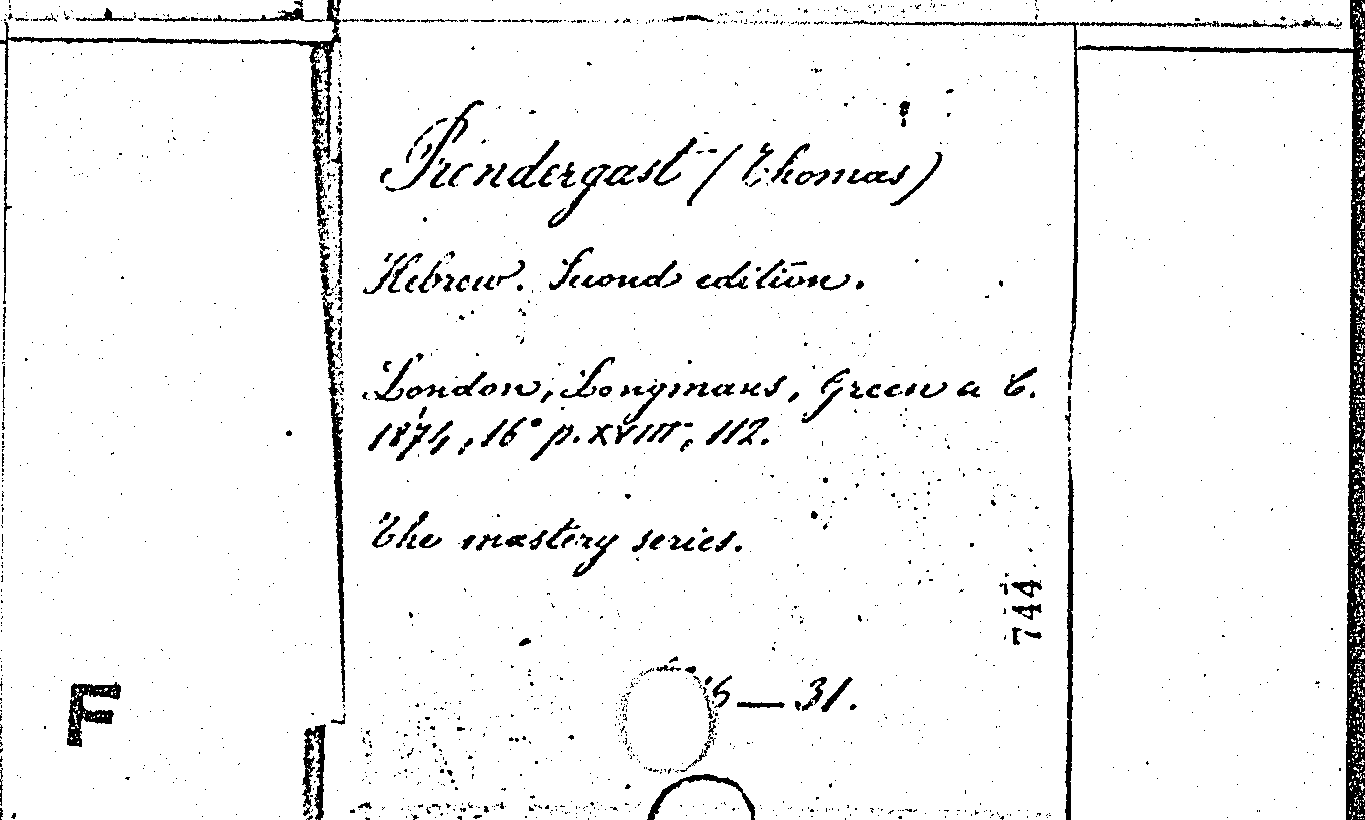 Prendergast (Thomas)
Hebrew. Second edition.
London, Longmans, Green a C.
1874, 16° p. XVIII, 112.
The mastery series.
744
— 31.
F